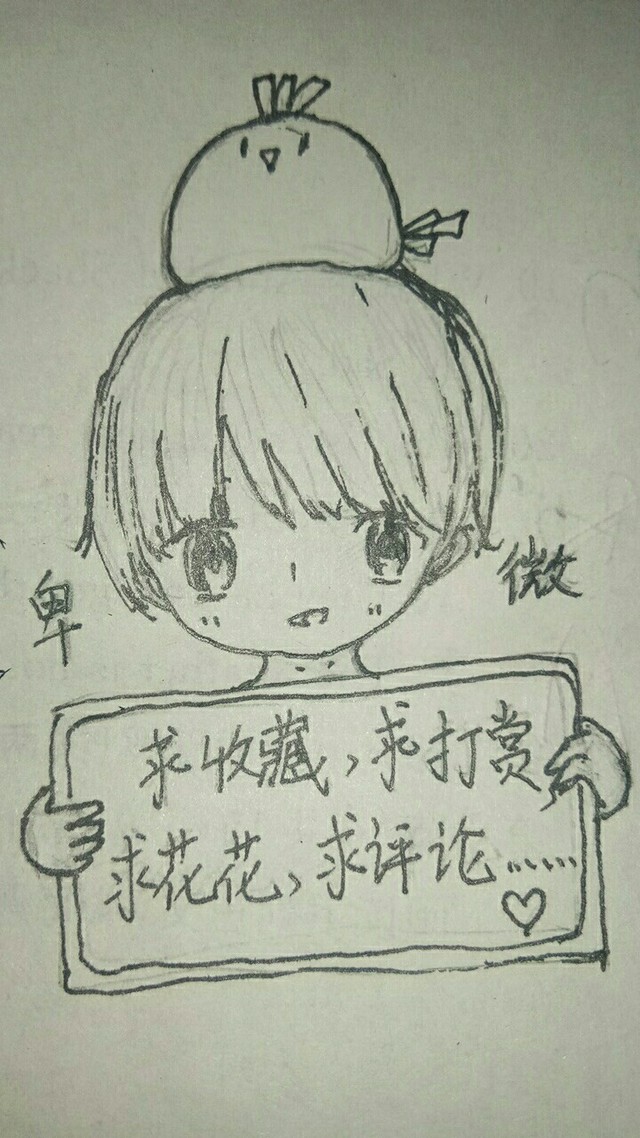 卑
微
求收藏,求打赏
求花花,求评论……